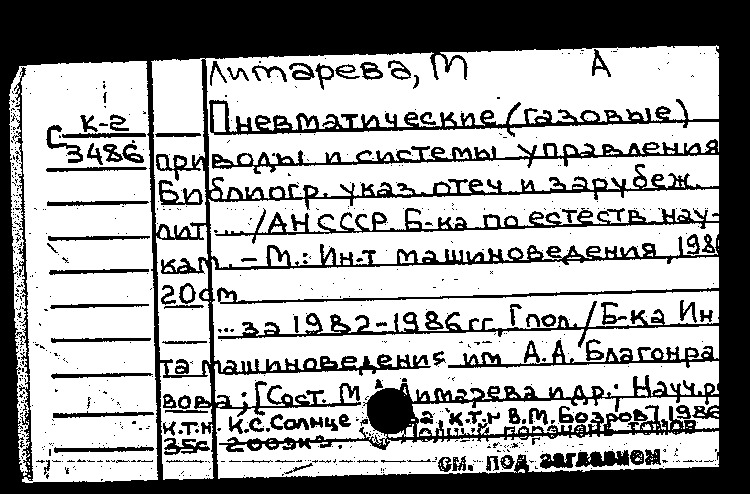 Литарева, М А
К-2
С 3486
Пневматические (газовые)
приводы и системы управления
Библиогр. указ. отеч и зарубеж.
лит ... / АН СССР. Б-ка по естеств нау-
кам. – М.: Ин-т машиноведения, 198
20см.
... за 1982-1986 гг, [пол./Б-ка Ин
та машиноведения им А.А. Благонра
вова; [Сост. М А Литарева и др.; Науч.р
к.т.н. К.С. Солнце ва, к.т.н В.М. Бозров] 1986
35с 200экз.
Полный перечень томов
см. под заглавием